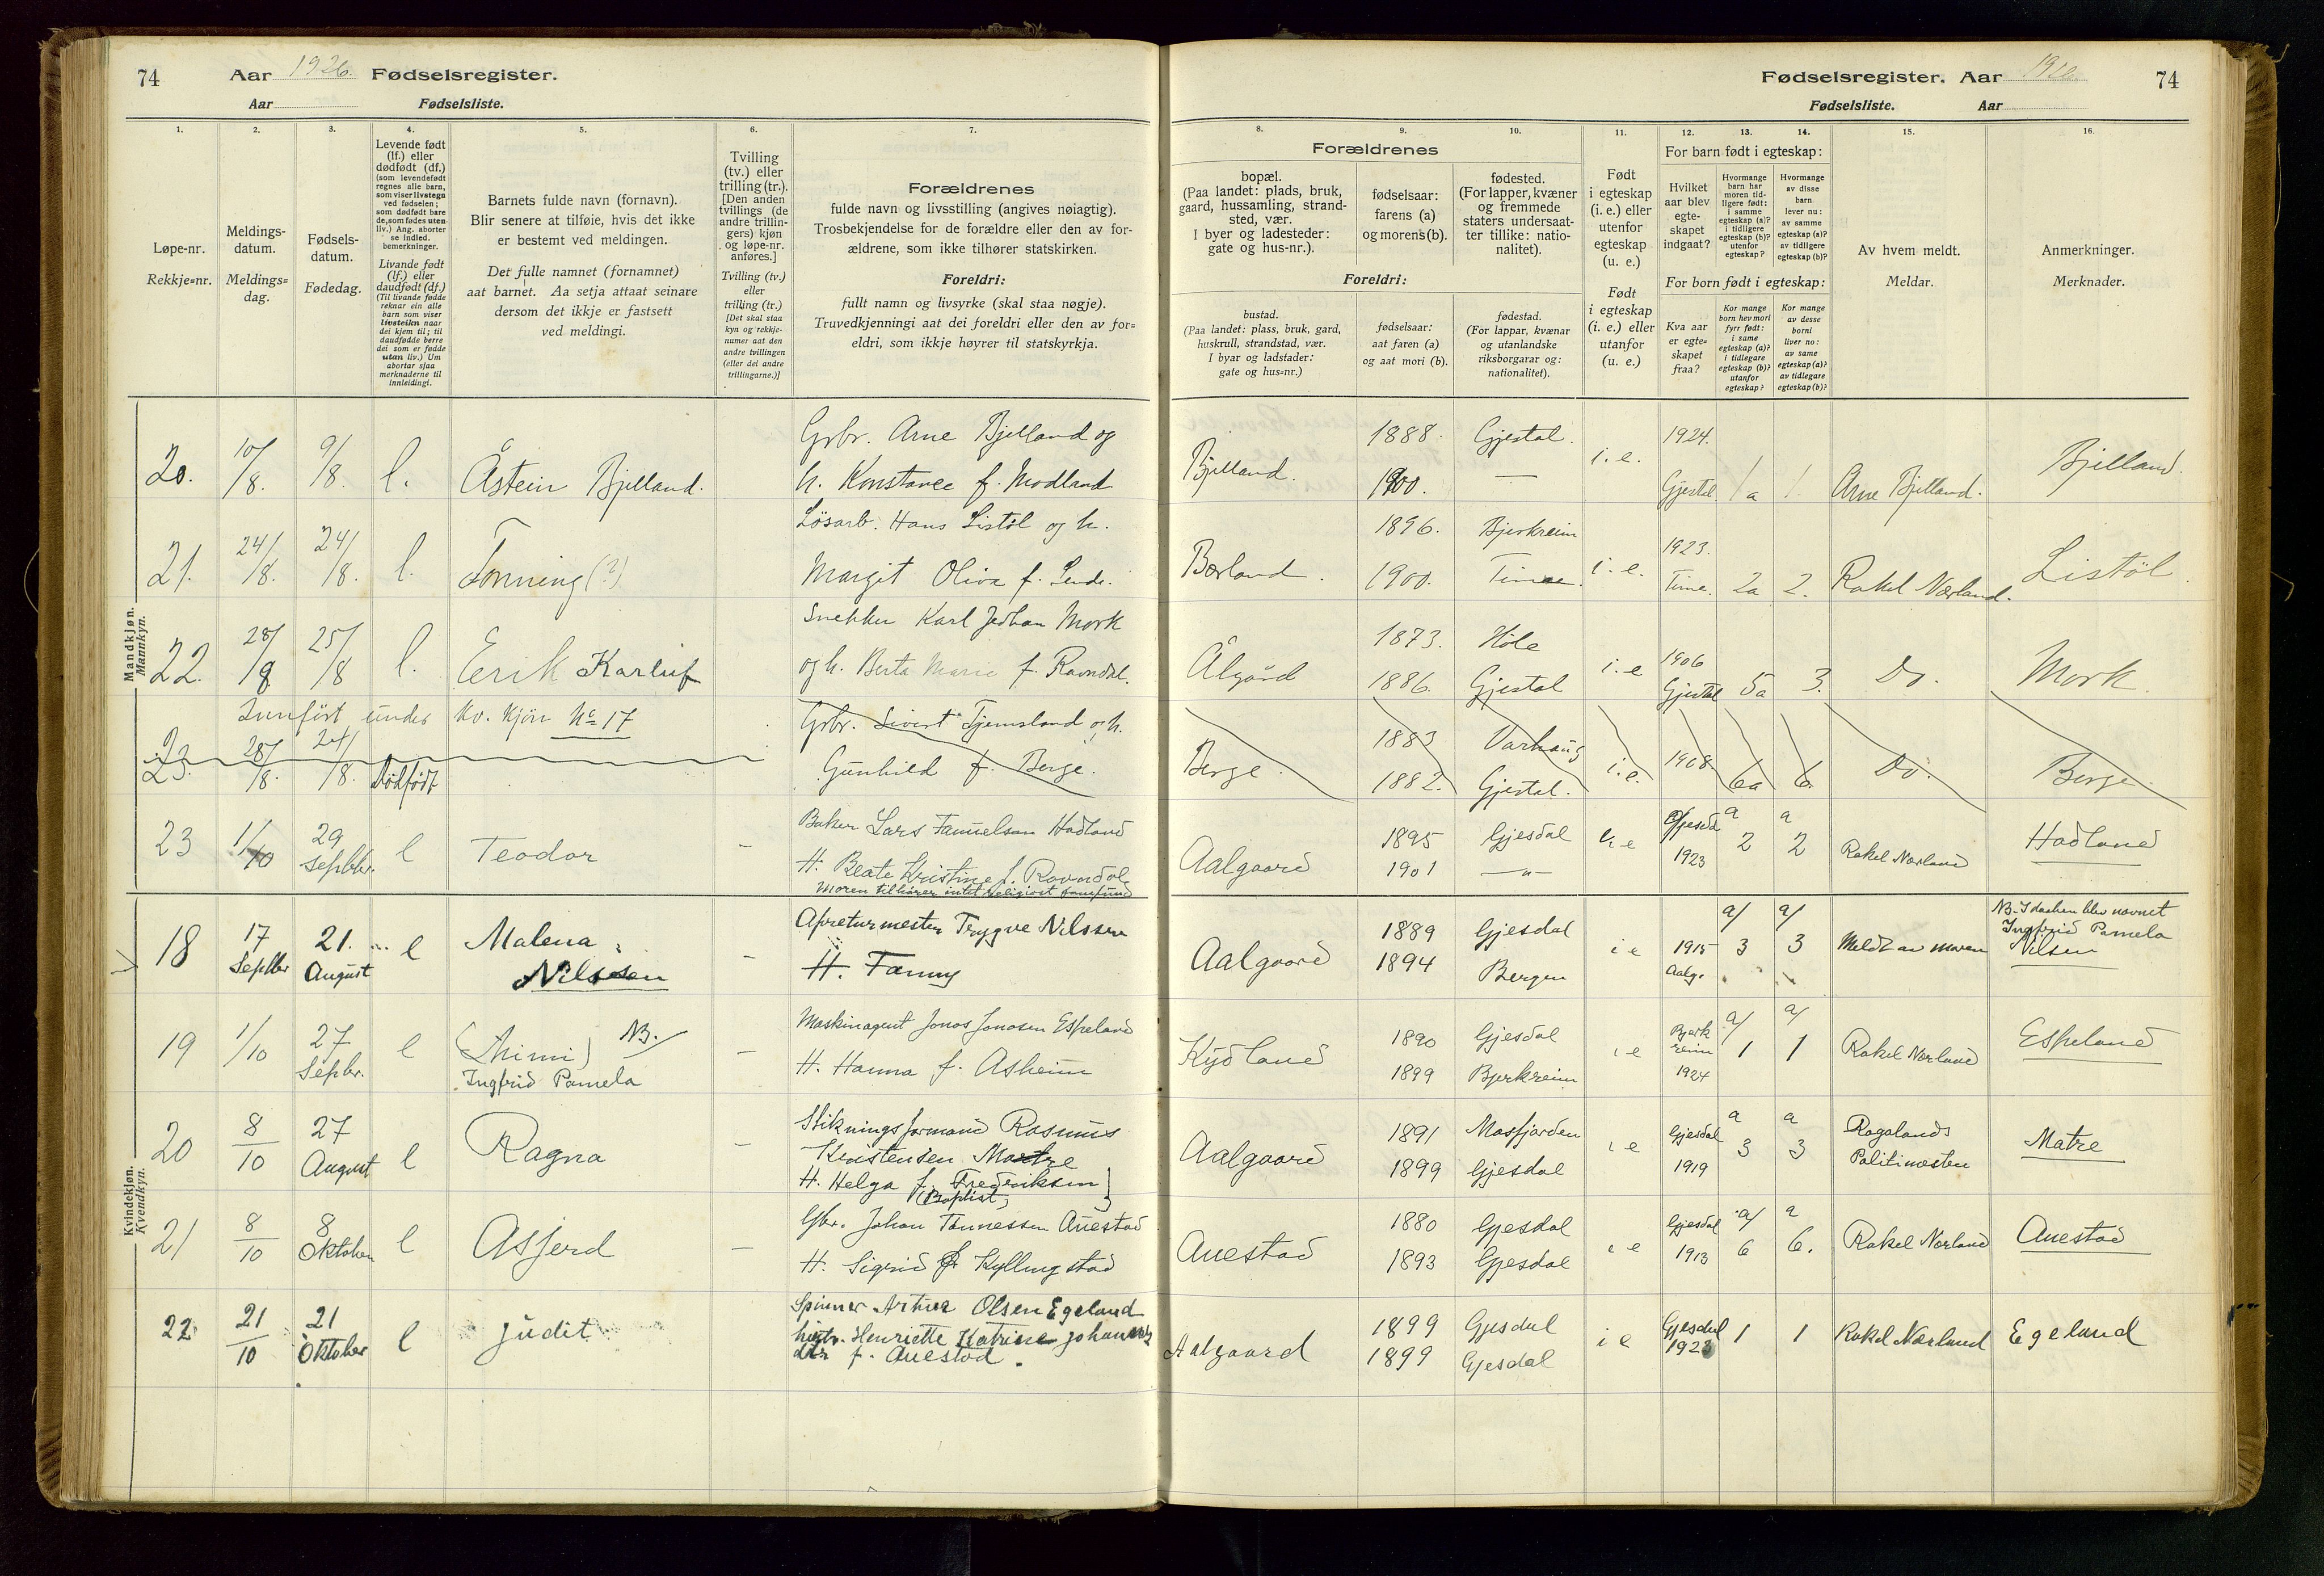 74 Aar 1926. Fødselsregister.
Aar Fødselsliste.
Fødselsregister. Aar 1926. 74
Fødselsliste. Aar
1. 2. 3. 4. 5. 6. 7.
Løpe-nr.
Rekkje=nr.
Meldings-
datum.
Meldings=
dag.
Fødsels-
datum.
Fødedag.
Levende født
(lf.) eller
dødfødt (df.)
(som levendefødt
regnes alle barn,
som viser livstegn
ved fødselen;
som dødfødt bare
de, som fødes uten
liv.) Ang. aborter
se indled.
bemerkninger.
Livande født
(lf.) eller
daudfødt (df.)
(Til livande fødde
reknar ein alle
barn som viser
livsteikn naar
dei kjem til; til
daudfødde berre
dei som er fødde
utan liv.) Um
abortar sjaa
merknaderne til
innleidingi.
Barnets fulde navn (fornavn).
Blir senere at tilføie, hvis det ikke
er bestemt ved meldingen.
Det fulle namnet (fornamnet)
aat barnet. Aa setja attaat seinare
dersom det ikkje er fastsett
ved meldingi.
Tvilling
(tv.) eller
trilling (tr.).
[Den anden
tvillings (de
andre trillin-
gers) kjøn
og løpe-nr.
anføres.]
Tvilling (tv.)
eller
trilling (tr.)
[Det skal staa
kyn og rekkje-
numer aat den
andre tvillingen
(eller dei andre
trillingarne.)]
Forældrenes
fulde navn og livsstilling (angives nøiagtig).
Trosbekjendelse for de forældre eller den av for-
ældrene, som ikke tilhører statskirken.
Foreldri:
fullt namn og livsyrke (skal staa nøgje).
Truvedkjenningi aat dei foreldri eller den av for=
eldri, som ikkje høyrer til statskyrkja.
8. 9. 10. 11. 12. 13. 14. 15. 16.
Forældrenes
bopæl.
(Paa landet: plads, bruk,
gaard, hussamling, strand-
sted, vær.
I byer og ladesteder:
gate og hus-nr.).
fødselsaar:
farens (a)
og morens (b).
fødested.
(For lapper, kvæner
og fremmede
staters undersaat-
ter tillike: natio-
nalitet).
Foreldri:
bustad.
(Paa landet: plass, bruk, gard,
huskrull, strandstad, vær.
I byar og ladstader:
gate og hus=nr.)
fødselsaar:
aat faren (a)
og aat mori (b).
fødestad.
(For lappar, kvænar
og utanlandske
riksborgarar og:
nationalitet).
Født
i egteskap
(i. e.) eller
utenfor
egteskap
(u. e.)
Født
i egteskap
(i. e.) eller
utanfor
(u. e.)
For barn født i egteskap:
Hvilket
aar blev
egte-
skapet
indgaat?
Hvormange
barn har
moren tid-
ligere født:
i samme
egteskap (a)?
i tidligere
egteskap (b)?
utenfor
egteskap?
Hvormange
av disse
barn
lever nu:
av samme
egteskap (a)?
av tidligere
egteskap (b)?
For born født i egteskap:
Kva aar
er egte=
skapet
fraa?
Kor mange
born hev mori
fyrr født:
i same
egteskap (a)?
i tidlegare
egteskap (b)?
utanfor
egteskap?
Kor mange
av desse
borni
liver no:
av same
egteskap (a)?
av tidlegare
egteskap (b)?
Av hvem meldt.
Meldar.
Anmerkninger.
Merknader.
Mandkjøn.
Mannkyn.
20. 10/8. 9/8. l. Åstein Bjelland. Grbr. Arne Bjelland og
h. Konstance f. Modland
Bjelland. 1888. Gjestal. i. e. 1924. Gjestal 1a 1. Arne Bjelland. Bjelland.
1900. —
21. 24/8. 24/8. l. Tonning (?) Løsarb. Hans Listøl og h.
Margit Oliva f. Lende.
Borland. 1896. Bjerkreim i. e. 1923. Time. 2a 2. Rakel Nærland. Listøl.
1900. Time.
22. 28/8 25/8 l. Erik Karluf Snekker Karl Johan Mork
og h. Berta Marie f. Ravndal.
Ålgård 1873. Høle i. e 1906 Gjestal 5a 3. Do. Mork.
1886. Gjestal
Innført under kv. kjøn No 17
23. 28/8. 24/8. Dødfødt Grbr. Sivert Tjemsland og h.
Gunhild f. Berge.
Berge. 1883 Varhaug i. e. 1908. 6a 6. Do. Berge
1882. Gjestal.
23 1/10 29 septbr. l Teodor - Baker Lars Samuelsen Hadland
H. Beate Kristine f. Ravndal
Moren tilhører intet religiøst samfund
Aalgaard 1895 Gjesdal i e Gjesdal 1923 a 2 a 2 Rakel Nærland Hadland
1901 —"—
Kvindekjøn.
Kvendkyn.
18 17 Septbr 21. August l Malena Nilssen - Apreturmester Trygve Nilssen
H. Fanny
Aalgaard 1889 Gjesdal i e 1915 Aalg. a/ 3 a/ 3 Meldt av moren
1894 Bergen
NB. I daaben blev navnet
Ingfrid Pamela
Nilsen
19 1/10 27 Septbr. l (Mimi) NB.
Ingfrid Pamela
- Maskinagent Jonas Jonasen Espeland
H. Hanna f. Asheim
Kydland 1890 Gjesdal i e Bjerkreim 1924 a/ 1 a/ 1 Rakel Nærland Espeland
1899 Bjerkreim
20 8/10 27 August l Ragna - Stikningsformand Rasmus
Kristensen Matre
H. Helga f. Frederiksen
(Baptist)
Aalgaard 1891 Masfjorden i e Gjesdal 1919 a 3 a 3 Rogalands Politimester Matre
1899 Gjesdal
21 8/10 8 Oktober l Asferd — Gbr. Johan Tønnessen Auestad
H. Sigrid f. Kyllingstad
Auestad 1880 Gjesdal i e Gjesdal 1913 a/ 6 a 6. Rakel Nærland Auestad
1893 Gjesdal
22 21/10 21 Oktober l Judit Spinner Artur Olsen Egeland
hustr. Henriette Katrine Johannes
dtr f. Auestad.
Aalgaard 1899 Gjesdal i e Gjesdal 1923 1 1 Rakel Nærland Egeland
1899 Gjesdal